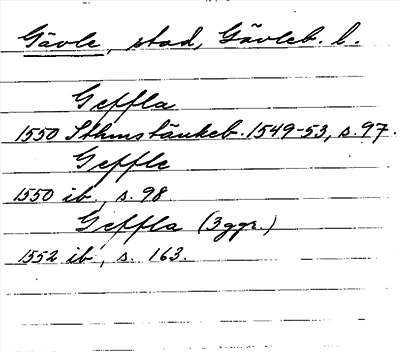 Gävle, stad, Gävleb. l.
Geffla
1550 Sthmstänkeb. 1549-53, s. 97.
Geffle
1550 ib., s. 98.
Geffla (3 ggr.)
1552 ib., s. 163.